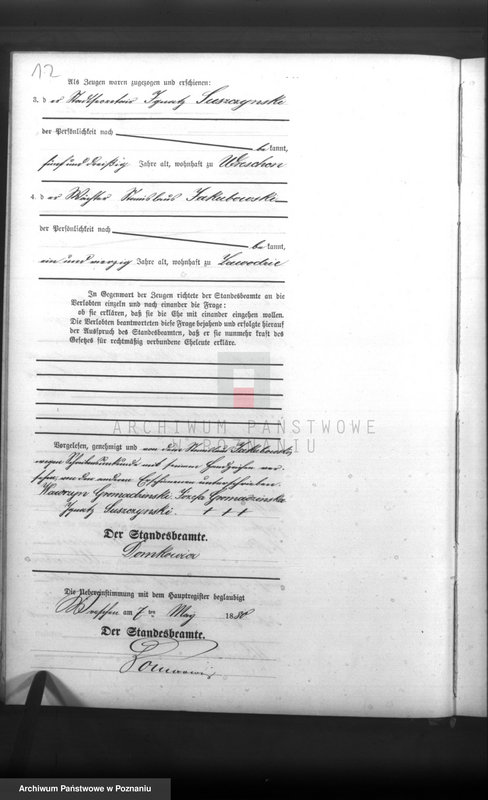 12
Als Zeugen waren zugezogen und erschienen:
3. d er Stadtsecretair Ignatz Suszczynski
der Persönlichkeit nach
be kannt,
fünf und dreißig Jahre alt, wohnhaft zu Wreschen
4. d er Wächter Stanislaus Jakubowski
der Persönlichkeit nach
be kannt,
ein und vierzig Jahre alt, wohnhaft zu Zawodzie
In Gegenwart der Zeugen richtete der Standesbeamte an die
Verlobten einzeln und nach einander die Frage:
ob sie erklären, daß sie die Ehe mit einander eingehen wollen.
Die Verlobten beantworteten diese Frage bejahend und erfolgte hierauf
der Ausspruch des Standesbeamten, daß er sie nunmehr kraft des
Gesetzes für rechtmäßig verbundene Eheleute erkläre.
ARCHIWUM PAŃSTWOWE
W POZNANIU
Vorgelesen, genehmigt und von dem Stanislaus Jakubowski
wegen Schreibensunkunde mit seinem Handzeichen ver-
sehen, von den anderen Erschienenen unterschrieben.
Wawrzyn Gromadzinski. Józefa Gromadzinska
Ignatz Suszczynski. + + +
Der Standesbeamte.
Die Uebereinstimmung mit dem Hauptregister beglaubigt
Wreschen am 7ten May 1880
Der Standesbeamte.
Archiwum Państwowe w Poznaniu